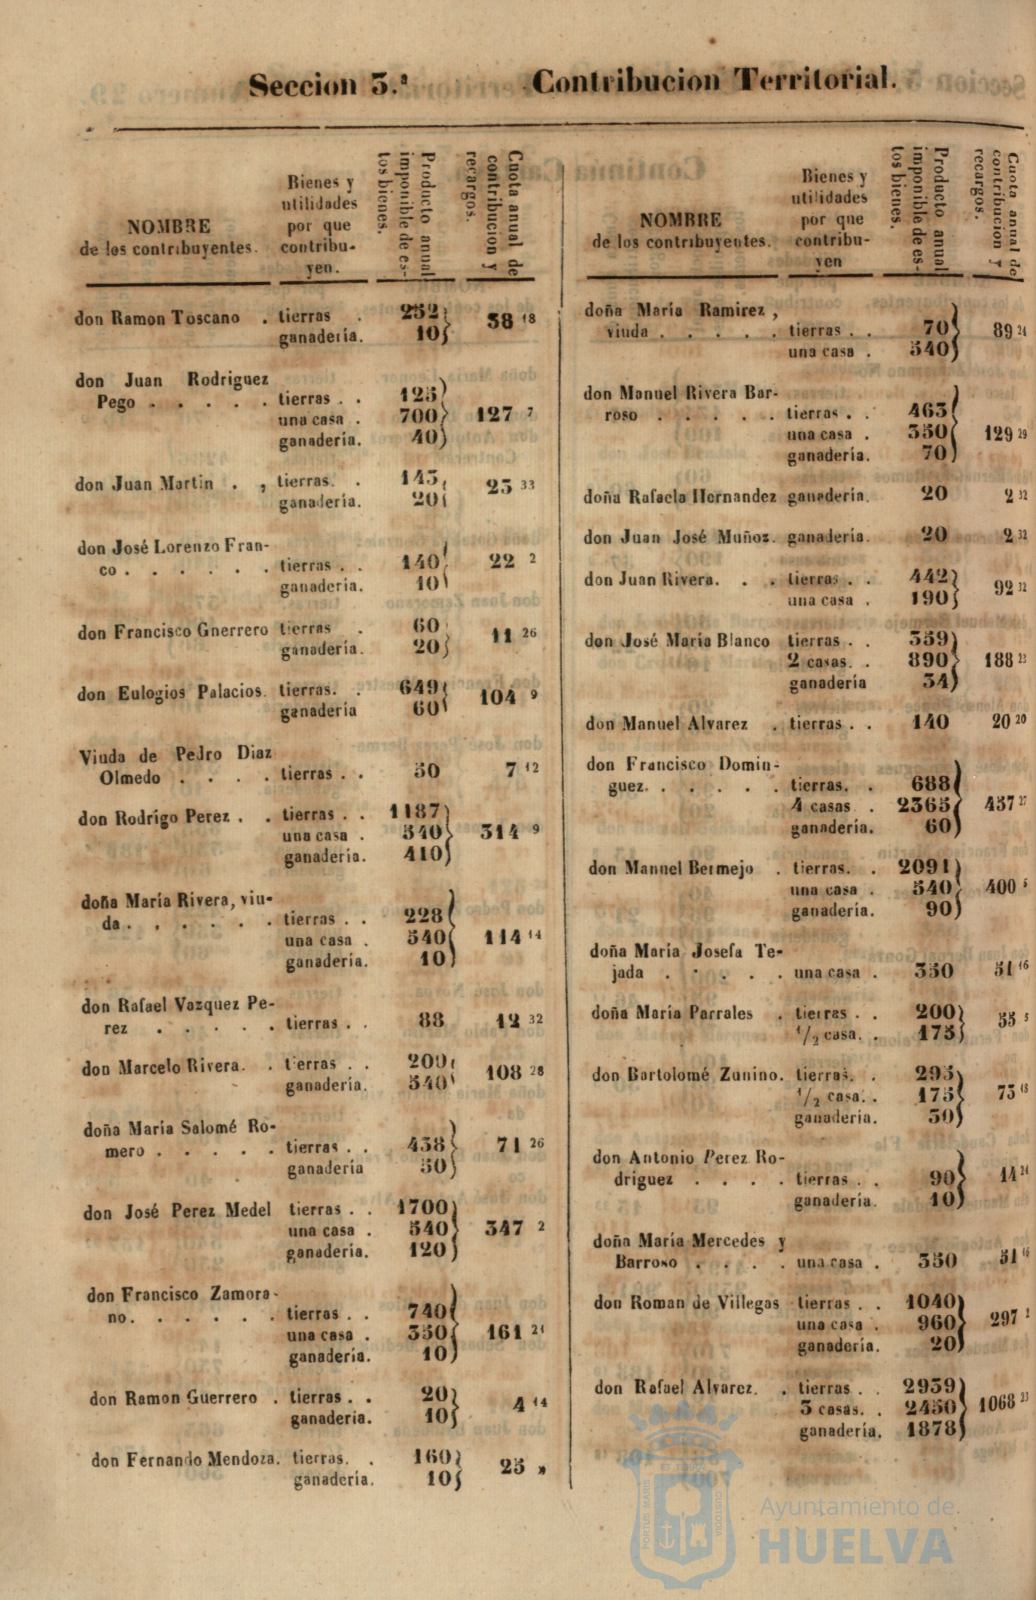 Seccion 3.ª Contribucion Territorial.
NOMBRE
de los contribuyentes.
Bienes y
utilidades
por que
contribu-
yen.
Producto anual
imponible de es-
tos bienes.
Cuota anual de
contribucion y
recargos.
don Ramon Toscano . tierras . 252
ganadería. 10 38 18
don Juan Rodriguez
Pego . . . . . tierras . . 125
una casa . 700 127 7
ganadería. 40
don Juan Martin . , tierras. . 145
ganadería. 20 23 33
don José Lorenzo Fran-
co . . . . . . tierras . . 140 22 2
ganadería. 10
don Francisco Gnerrero tierras . 60
ganadería. 20 11 26
don Eulogios Palacios. tierras. . 649
ganadería 60 104 9
Viuda de Pedro Diaz
Olmedo . . . . tierras . . 50 7 12
don Rodrigo Perez . . tierras . . 1187
una casa . 540 314 9
ganadería. 410
doña María Rivera, viu-
da . . . . . . tierras . . 228
una casa . 540 114 14
ganadería. 10
don Rafael Vazquez Pe-
rez . . . . . tierras . . 88 12 32
don Marcelo Rivera. . tierras . . 209
ganadería. 540 108 28
doña María Salomé Ro-
mero . . . . . tierras . . 438 71 26
ganadería 50
don José Perez Medel tierras . . 1700
una casa . 540 347 2
ganadería. 120
don Francisco Zamora-
no. . . . . . tierras . . 740
una casa . 350 161 21
ganadería. 10
don Ramon Guerrero . tierras . . 20
ganadería. 10 4 14
don Fernando Mendoza. tierras. . 160
ganadería. 10 25 »
NOMBRE
de los contribuyentes.
Bienes y
utilidades
por que
contribu-
yen
Producto anual
imponible de es-
tos bienes.
Cuota anual de
contribucion y
recargos.
doña María Ramirez,
viuda . . . . . tierras . . 70 89 24
una casa . 540
don Manuel Rivera Bar-
roso . . . . . tierras . . 463
una casa . 350 129 29
ganadería. 70
doña Rafaela Hernandez ganadería. 20 2 32
don Juan José Muñoz. ganadería. 20 2 32
don Juan Rivera. . . tierras . . 442
una casa . 190 92 12
don José María Blanco tierras . . 359
2 casas. . 890 188 23
ganadería 34
don Manuel Alvarez . tierras . . 140 20 20
don Francisco Domin-
guez. . . . . . tierras. . 688
4 casas . 2365 437 27
ganadería. 60
don Manuel Bermejo . tierras. . 2091
una casa . 540 400 5
ganadería. 90
doña María Josefa Te-
jada . . . . . una casa . 350 51 16
doña María Parrales . tierras . . 200
1/2 casa. . 175 55 5
don Bartolomé Zunino. tierras. . 295
1/2 casa. . 175 73 18
ganadería. 50
don Antonio Perez Ro-
driguez . . . . tierras . . 90 14 24
ganadería. 10
doña María Mercedes y
Barroso . . . . una casa . 350 51 16
don Roman de Villegas tierras . . 1040
una casa . 960 297 2
ganadería. 20
don Rafael Alvarez. . tierras . . 2939
3 casas. . 2450 1068 23
ganadería. 1878
PORTUS MARIS ET TERRAE CUSTODIA
Ayuntamiento de
HUELVA